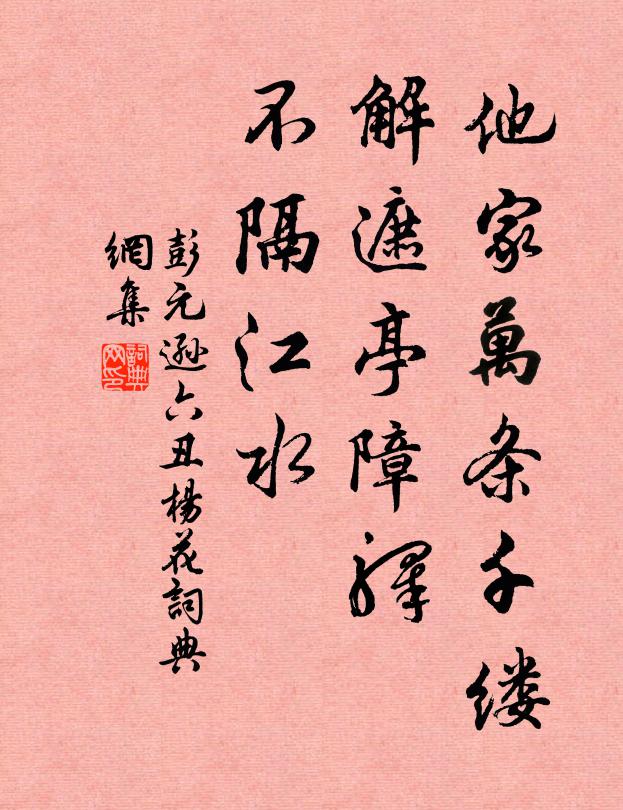 他家萬条千缕
解遮亭障驛
不隔江水
彭元遜六丑楊花詞典
網集
詞典
网印